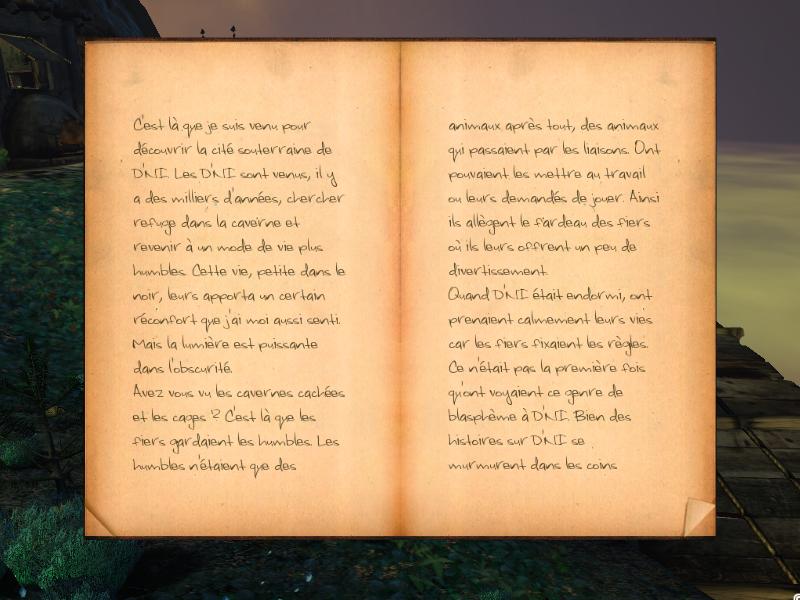 C'est là que je suis venu pour
découvrir la cité souterraine de
D'NI. Les D'NI sont venus, il y
a des milliers d'années, chercher
refuge dans la caverne et
revenir à un mode de vie plus
humbles. Cette vie, petite dans le
noir, leurs apporta un certain
réconfort que j'ai moi aussi senti.
Mais la lumière est puissante
dans l'obscurité.
Avez vous vu les cavernes cachées
et les cages ? C'est là que les
fiers gardaient les humbles. Les
humbles n'étaient que des
animaux après tout, des animaux
qui passaient par les liaisons. Ont
pouvaient les mettre au travail
ou leurs demandés de jouer. Ainsi
ils allègent le fardeau des fiers
où ils leurs offrent un peu de
divertissement.
Quand D'NI était endormi, ont
prenaient calmement leurs vies
car les fiers fixaient les règles.
Ce n'était pas la première fois
qu'ont voyaient ce genre de
blasphème à D'NI. Bien des
histoires sur D'NI se
murmurent dans les coins